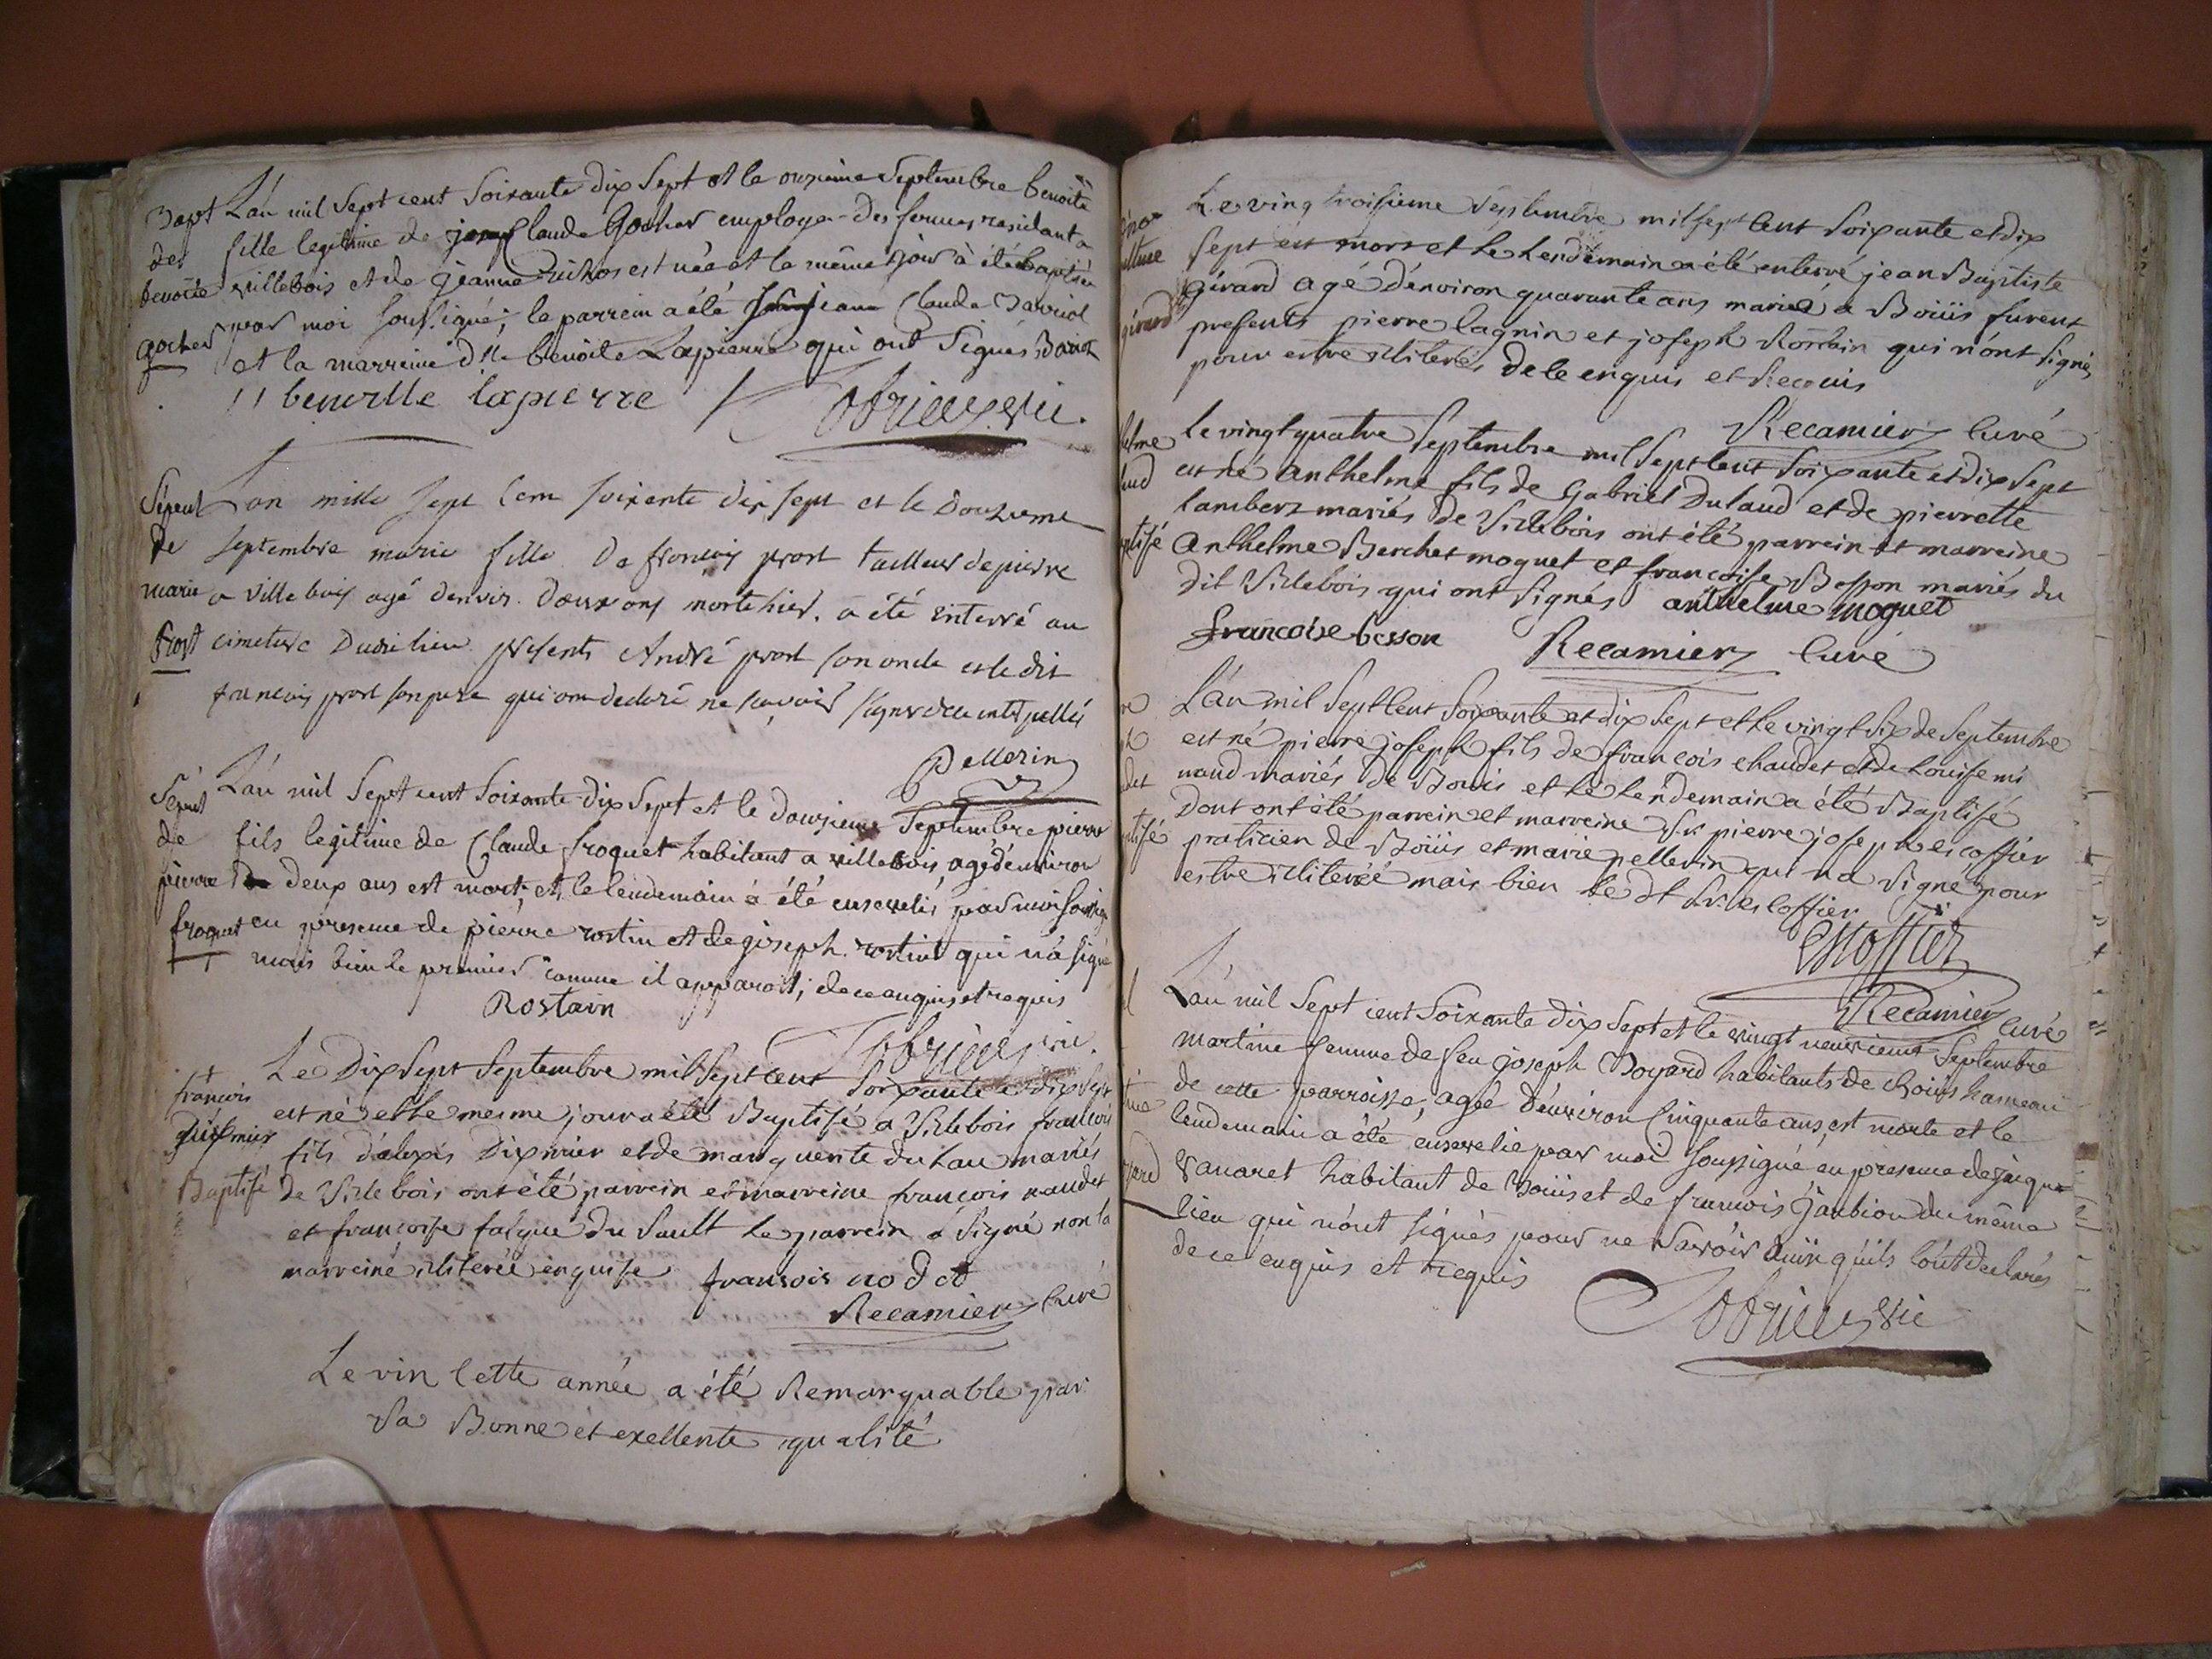 Bapt L'an mil Sept cent Soixante dix Sept et le onzieme Septembre benoite
de fille legitime de Claude Gocher employe des fermes residant a
benoite villebois et de jeanne est née et le même jour à été baptisée
gocher par moi soussigné; le parrein a été jean Claude
et la marreine dlle benoite Lapierre qui ont signés
benoitte lapierre vic.
Sepul L'an mille sept cent soixente dix sept et le Douzieme
de septembre marie fille De francois prost tailleur de pierre
marie a villebois agé denvir. Deux ans morte hier, a été enterré au
prost cimetiere Dudit lieu presents André prost son oncle et le dit
francois prost son pere qui ont declaré ne sçavoir signer de ce interpellés
Pellerin
Sepul L'an mil Sept cent Soixante dix Sept et le douzieme Septembre pierre
de fils legitime de Claude froquet habitant a villebois agé d'environ
pierre deux ans est mort, et le lendemain à été enseveli par moi soussigné
froquet en presence de pierre rostin et de joseph rostint qui n'a signé
mais bien le premier comme il apparoit, de ce enquis et requis
Rostain
vic.
françois Le Dix Sept Septembre mil Sept cent Soixante et dix Sept
est né et le mesme jour a été Baptisé a Villebois francois
fils d'alexis Dixmier et de marguerite du mariés
Baptisé de Villebois ont été parrein et marreine françois naudet
et françoise falque du Sault le parrein a signé non la
marreine illiterée enquise fransois nodet
Recamier Curé
Le vin Cette année a été Remarquable par
Sa Bonne et exellente qualité
Le ving troisieme Septembre mil sept Cent Soixante et dix
ulture sept est mort et le Lendemain a été enterré jean Baptiste
girard Girard agé d'environ quarante ans marié a Boüis furent
presents pierre lagnin et joseph Rostain qui n'ont signés
pour estre illiterés de ce enquis et Requis
Recamier Curé
helme le vingt quatre Septembre mil Sept Cent Soixante et dix Sept
aud est né anthelme fils de Gabriel Dulaud et de pierrette
lambert mariés de Villebois ont été parrein et marreine
ptisé Anthelme Berchet moquet et françoise Besson mariés du
dit Villebois qui ont signés anthelme moquet
francoise besson Recamier Curé
L'an mil Sept Cent Soixante et dix Sept et le vingt Six de Septembre
est né pierre joseph fils de françois chaudet et de Louise mi
det naud mariés de Bouis et le Lendemain a été Baptisé
Dont ont été parrein et marreine Sr pierre joseph escoffier
ptisé praticien de Boüis et marie pellerin qui n'a signé pour
estre illiterée mais bien le dt Sr. escoffier
Escoffier
Recamier Curé
L'an mil Sept cent Soixante dix Sept et le vingt neuvieme Septembre
martine femme de feu joseph Boyard habitants de Boüis hameau
de cette parroisse, agée d'environ Cinquante ans, est morte et le
tine lendemain a été ensevelie par moi soussigné en presence de jaque
yard Vanaret habitant de Boüis et de francois Janbion du même
lieu qui n'ont signés pour ne Savoir ainsi qu'ils l'ont declarés
de ce enquis et requis
vic